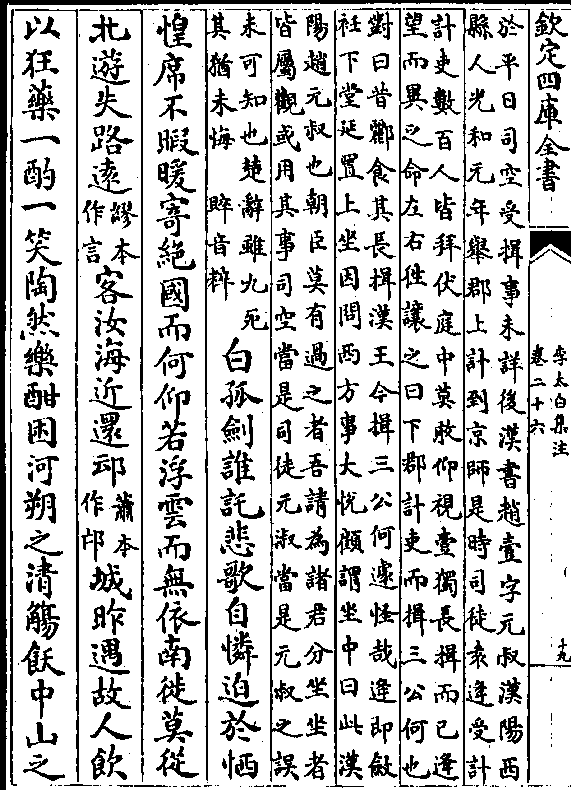 欽定四庫全書
李太白集注
卷二十六
十九
於平日司空受揖事未詳後漢書趙壹字元叔漢陽西
縣人光和元年舉郡上計到京師是時司徒袁逢受計
計吏數百人皆拜伏庭中莫敢仰視壹獨長揖而已逢
望而異之命左右徃讓之曰下郡計吏而揖三公何也
對曰昔酈食其長揖漢王今揖三公何遽怪哉逢即斂
衽下堂延置上坐因問西方事大悅顧謂坐中曰此漢
陽趙元叔也朝臣莫有過之者吾請為諸君分坐坐者
皆屬觀或用其事司空當是司徒元淑當是元叔之誤
未可知也楚辭雖九死
其猶未悔 睟音粹
白孤劍誰託悲歌自憐迫於恓
惶席不暇暖寄絕國而何仰若浮雲而無依南徙莫從
北遊失路遠繆本作言客汝海近還邛蕭本作邙城昨遇故人飲
以狂藥一酌一笑陶然樂酣困河朔之清觴飫中山之